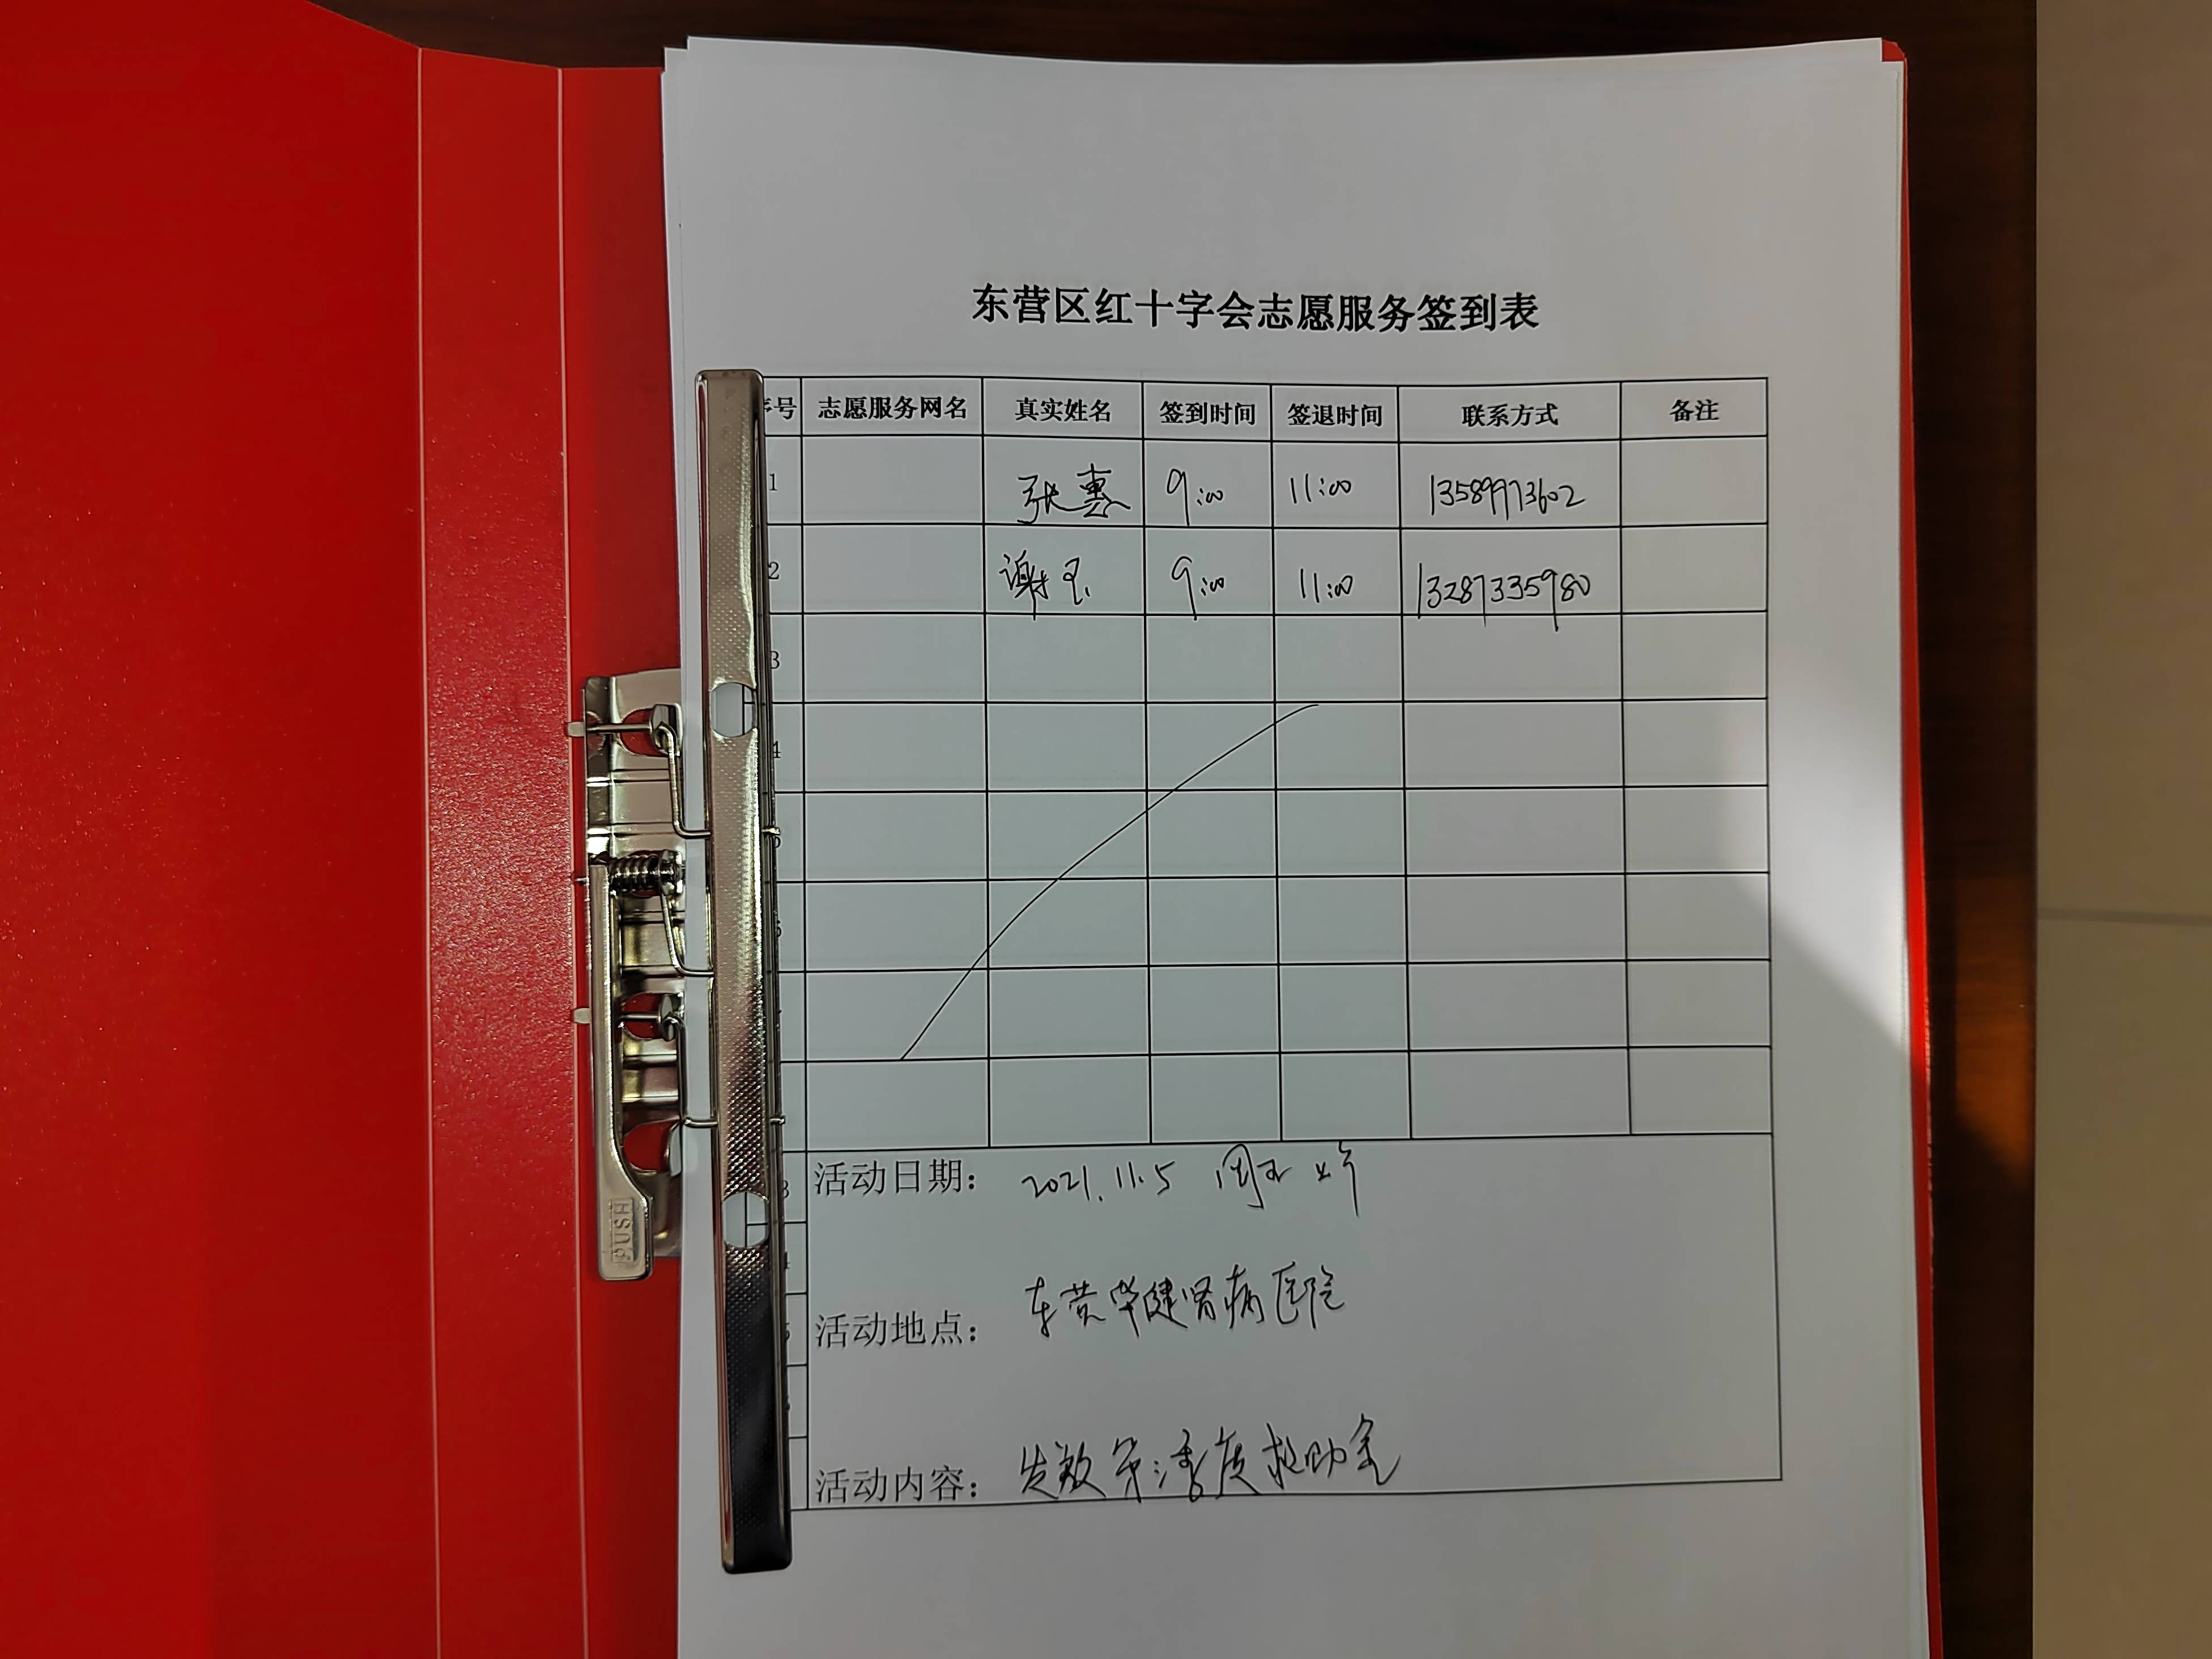 东营区红十字会志愿服务签到表
序号 志愿服务网名 真实姓名 签到时间 签退时间 联系方式 备注
1 张惠 9:00 11:00 13589973602
2 谢玉 9:00 11:00 13287335980
3
4
5
6
活动日期： 2021.11.5 周五 上午
活动地点： 东营华健肾病医院
活动内容： 发放第三季度救助金
PUSH